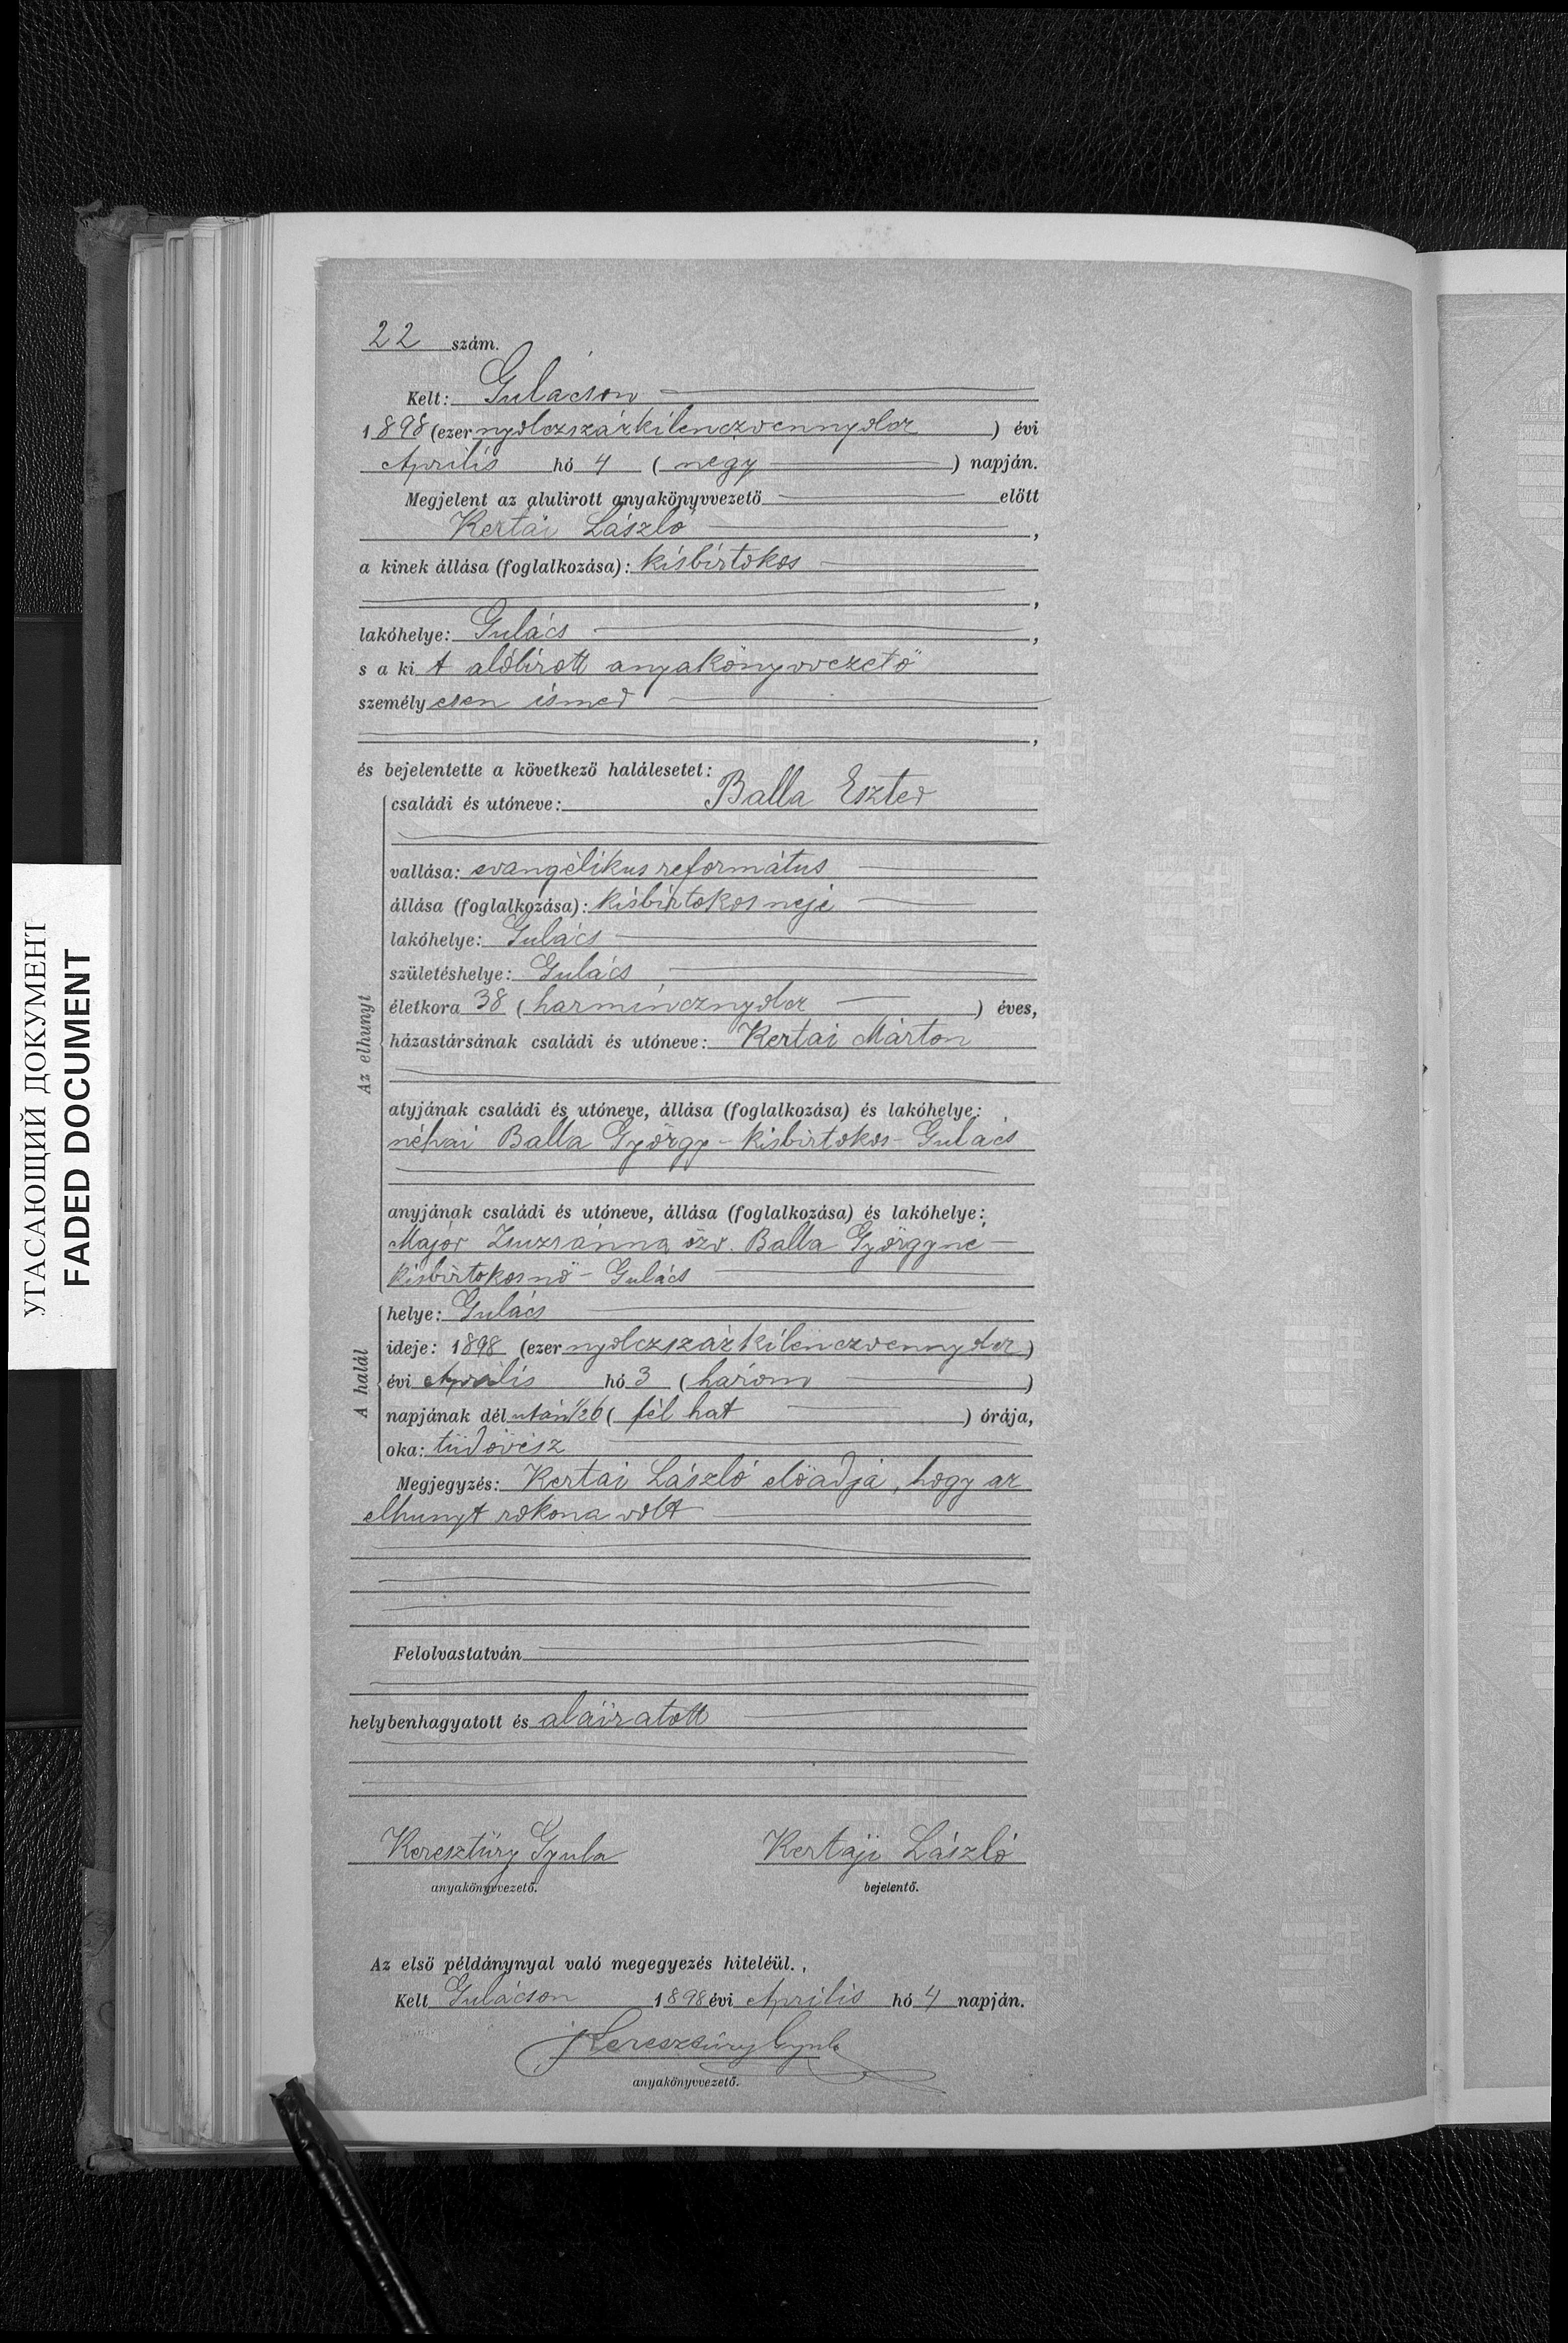 22 szám.
Kelt: Gulácson
1898 (ezer nyolczszázkilenczvennyolcz) évi
Április hó 4 (négy) napján.
Megjelent az alulirott anyakönyvvezető előtt
Kertai László,
a kinek állása (foglalkozása): kisbirtokos
,
lakóhelye: Gulács,
s a kit alólirott anyakönyvvezető
személyesen ismer
,
és bejelentette a következő halálesetet:
Az elhunyt
családi és utóneve: Balla Eszter
vallása: evangélikus református
állása (foglalkozása): kisbirtokos neje
lakóhelye: Gulács
születéshelye: Gulács
életkora 38 (harmincznyolcz) éves,
házastársának családi és utóneve: Kertai Márton
atyjának családi és utóneve, állása (foglalkozása) és lakóhelye:
néhai Balla György - kisbirtokos - Gulács
anyjának családi és utóneve, állása (foglalkozása) és lakóhelye:
Major Zsuzsánna özv. Balla Györgyné -
kisbirtokosnő - Gulács
A halál
helye: Gulács
ideje: 1898 (ezer nyolczszázkilenczvennyolcz)
évi Április hó 3 (három)
napjának dél után 1/26 (fél hat) órája,
oka: tüdővész
Megjegyzés: Kertai László előadja, hogy az
elhunyt rokona volt
Felolvastatván
helybenhagyatott és aláiratott
Keresztúry Gyula Kertaji László
anyakönyvvezető. bejelentő.
Az első példánynyal való megegyezés hiteléül.
Kelt Gulácson 1898 évi Április hó 4 napján.
Keresztúry Gyula
anyakönyvvezető.
УГАСАЮЩИЙ ДОКУМЕНТ
FADED DOCUMENT